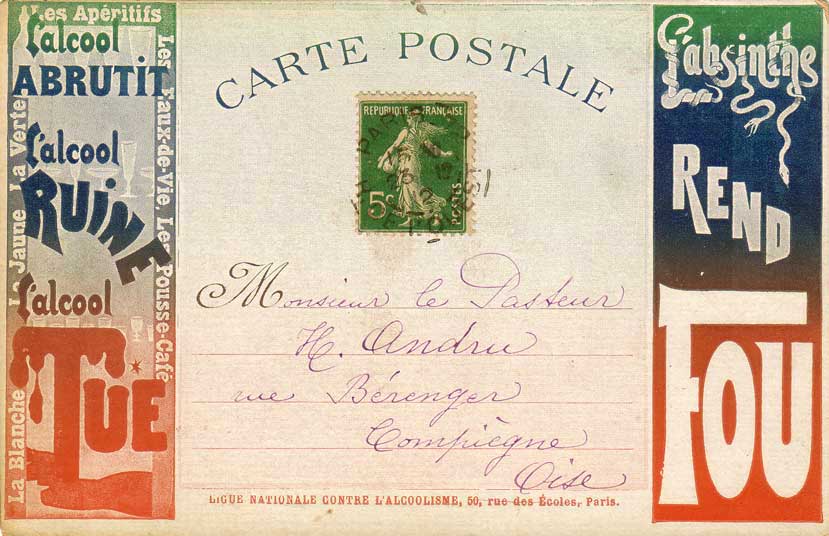 Les Apéritifs
L'alcool
ABRUTIT
L'alcool
RUINE
L'alcool
TUE
La Blanche La Jaune La Verte
Les Eaux-de-Vie, Les Pousse-Café
CARTE POSTALE
REPUBLIQUE FRANÇAISE
5c
POSTES
PARIS
Monsieur le Pasteur
H. Andru
rue Bérenger
Compiègne
Oise
LIGUE NATIONALE CONTRE L'ALCOOLISME, 50, rue des Écoles, Paris.
L'absinthe
REND
FOU